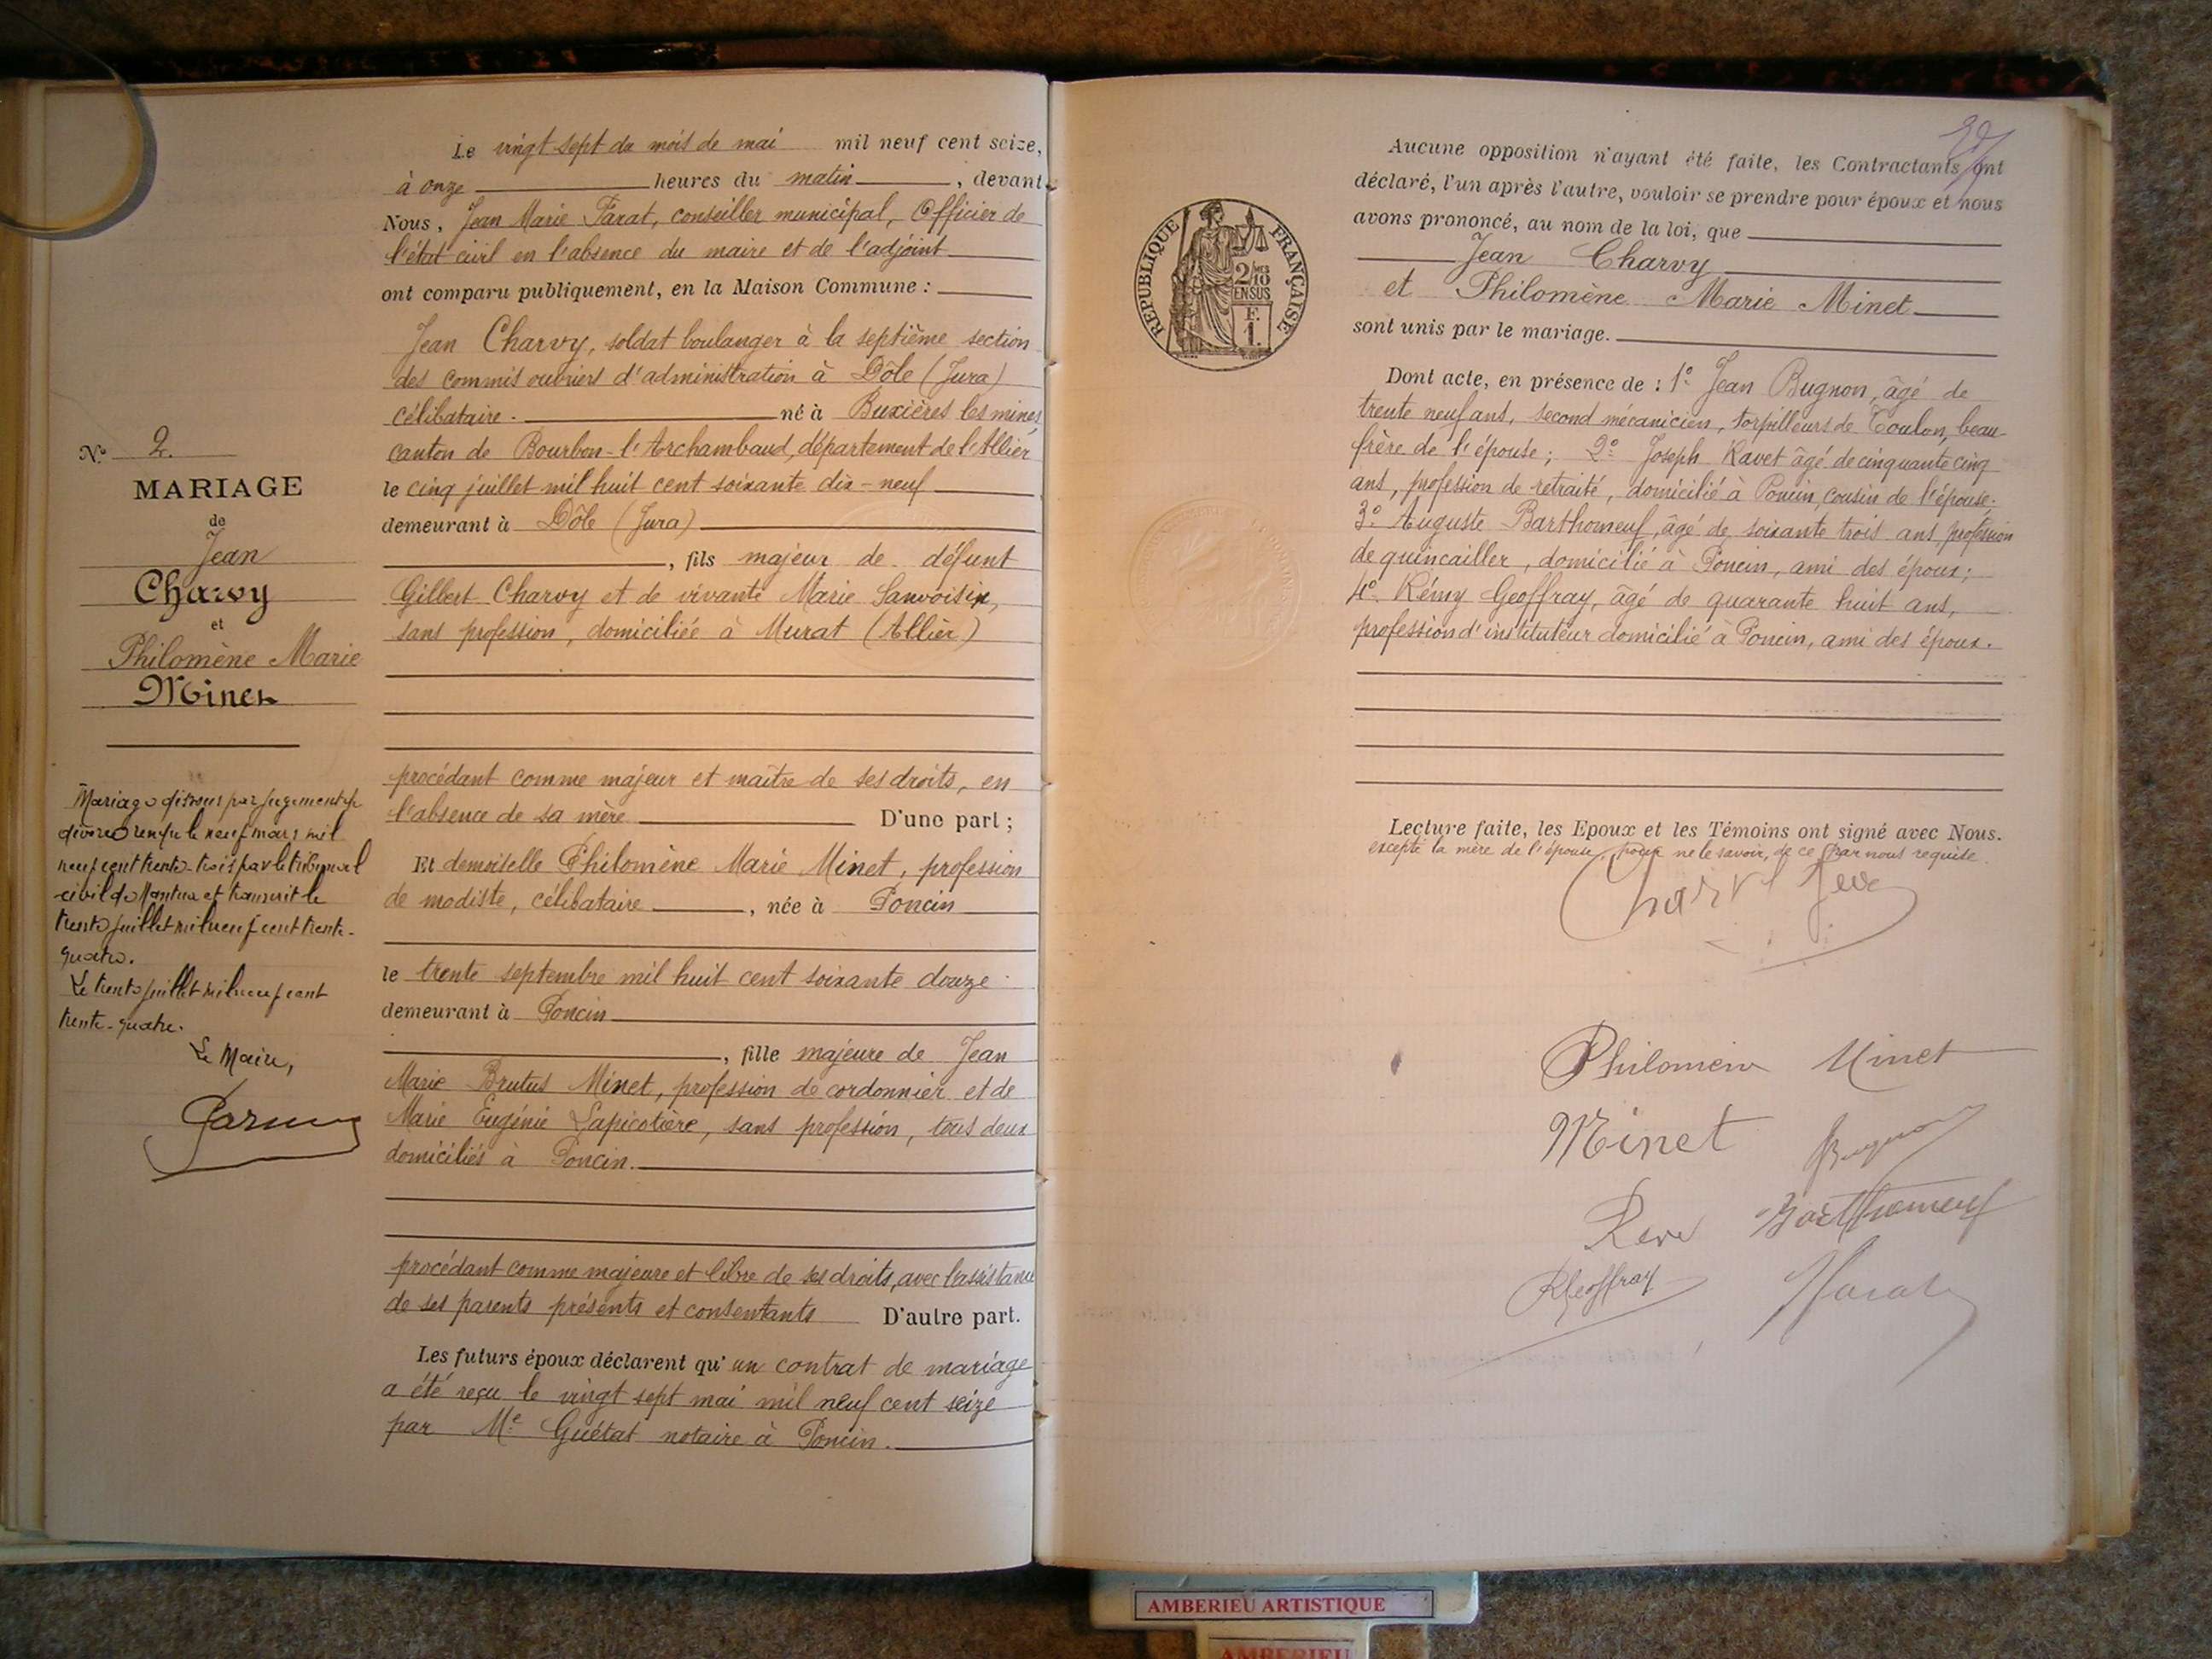 Le vingt sept du mois de mai mil neuf cent seize,
à onze heures du matin, devant
Nous, Jean Marie Farat, conseiller municipal, Officier de
l'état civil en l'absence du maire et de l'adjoint
ont comparu publiquement, en la Maison Commune :
Jean Charvy, soldat boulanger à la septième section
des commis ouvriers d'administration à Dôle (Jura)
célibataire. né à Buxières les mines,
canton de Bourbon-l'Archambaud, département de l'Allier
le cinq juillet mil huit cent soixante dix-neuf
demeurant à Dôle (Jura)
, fils majeur de défunt
Gilbert Charvy et de vivante Marie Sanvoisin,
sans profession, domiciliée à Murat (Allier)
procédant comme majeur et maître de ses droits, en
l'absence de sa mère D'une part ;
Et demoiselle Philomène Marie Minet, profession
de modiste, célibataire, née à Poncin
le trente septembre mil huit cent soixante douze
demeurant à Poncin
, fille majeure de Jean
Marie Brutus Minet, profession de cordonnier et de
Marie Eugénie Lapicotière, sans profession, tous deux
domiciliés à Poncin.
procédant comme majeure et libre de ses droits, avec l'assistance
de ses parents présents et consentants D'autre part.
Les futurs époux déclarent qu'un contrat de mariage
a été reçu le vingt sept mai mil neuf cent seize
par Me Guétat notaire à Poncin.
N° 2.
MARIAGE
de
Jean
Charvy
et
Philomène Marie
Minet
Mariage dissous par jugement de
divorce rendu le neuf mars mil
neuf cent trente-trois par le tribunal
civil de Nantua et transcrit le
trente juillet mil neuf cent trente-
quatre.
Le trente juillet mil neuf cent
trente-quatre.
Le Maire,
Aucune opposition n'ayant été faite, les Contractants ont
déclaré, l'un après l'autre, vouloir se prendre pour époux et nous
avons prononcé, au nom de la loi, que
Jean Charvy
et Philomène Marie Minet
sont unis par le mariage.
REPUBLIQUE FRANÇAISE
2/10 MES
EN SUS
F.
1.
Dont acte, en présence de : 1° Jean Bugnon, âgé de
trente neuf ans, second mécanicien, torpilleurs de Toulon, beau-
frère de l'épouse ; 2° Joseph Ravet âgé de cinquante cinq
ans, profession de retraité, domicilié à Poncin, cousin de l'épouse ;
3° Auguste Barthomeuf, âgé de soixante trois ans, profession
de quincailler, domicilié à Poncin, ami des époux ;
4° Rémy Geoffray, âgé de quarante huit ans,
profession d'instituteur domicilié à Poncin, ami des époux.
Lecture faite, les Epoux et les Témoins ont signé avec Nous.
excepté la mère de l'épouse, pour ne le savoir, de ce par nous requise.
Philomène Minet
Minet Bugnon
Barthomeuf
RGeoffray Farat
AMBERIEU ARTISTIQUE
AMBERIEU